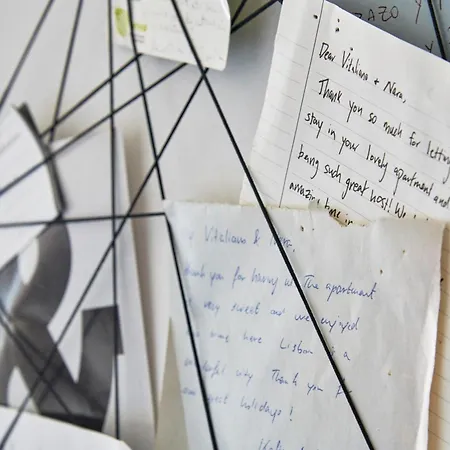 ZAZO
Dear Vitaliana + Nara,
Thank you so much for letting
stay in your lovely apartment and
being such great host! We
amazing time in
Vitaliana &
thank you for having us The apartment
very sweet and we enjoyed
here Lisbon is a
city Thank you for
holidays!